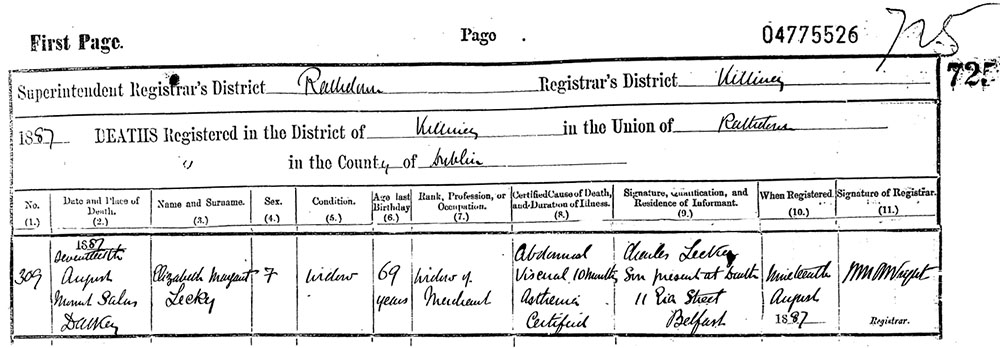 First Page.
Page
04775526
725
725
Superintendent Registrar's District Rathdown Registrar's District Killiney
1887 DEATHS Registered in the District of Killiney in the Union of Rathdown
" in the County of Dublin
No. (1.)
Date and Place of Death. (2.)
Name and Surname. (3.)
Sex. (4.)
Condition. (5.)
Age last Birthday (6.)
Rank, Profession, or Occupation. (7.)
Certified Cause of Death, and Duration of Illness. (8.)
Signature, Qualification, and Residence of Informant. (9.)
When Registered. (10.)
Signature of Registrar. (11.)
309
1887
Seventeenth
August
Mount Salus
Dalkey
Elizabeth Margaret
Lecky
F
Widow
69
years
Widow of
Merchant
Abdominal
Visceral 10 months
Asthenia
Certified
Charles Lecky
Son present at Death
11 Eia Street
Belfast
Nineteenth
August
1887
Wright
Registrar.